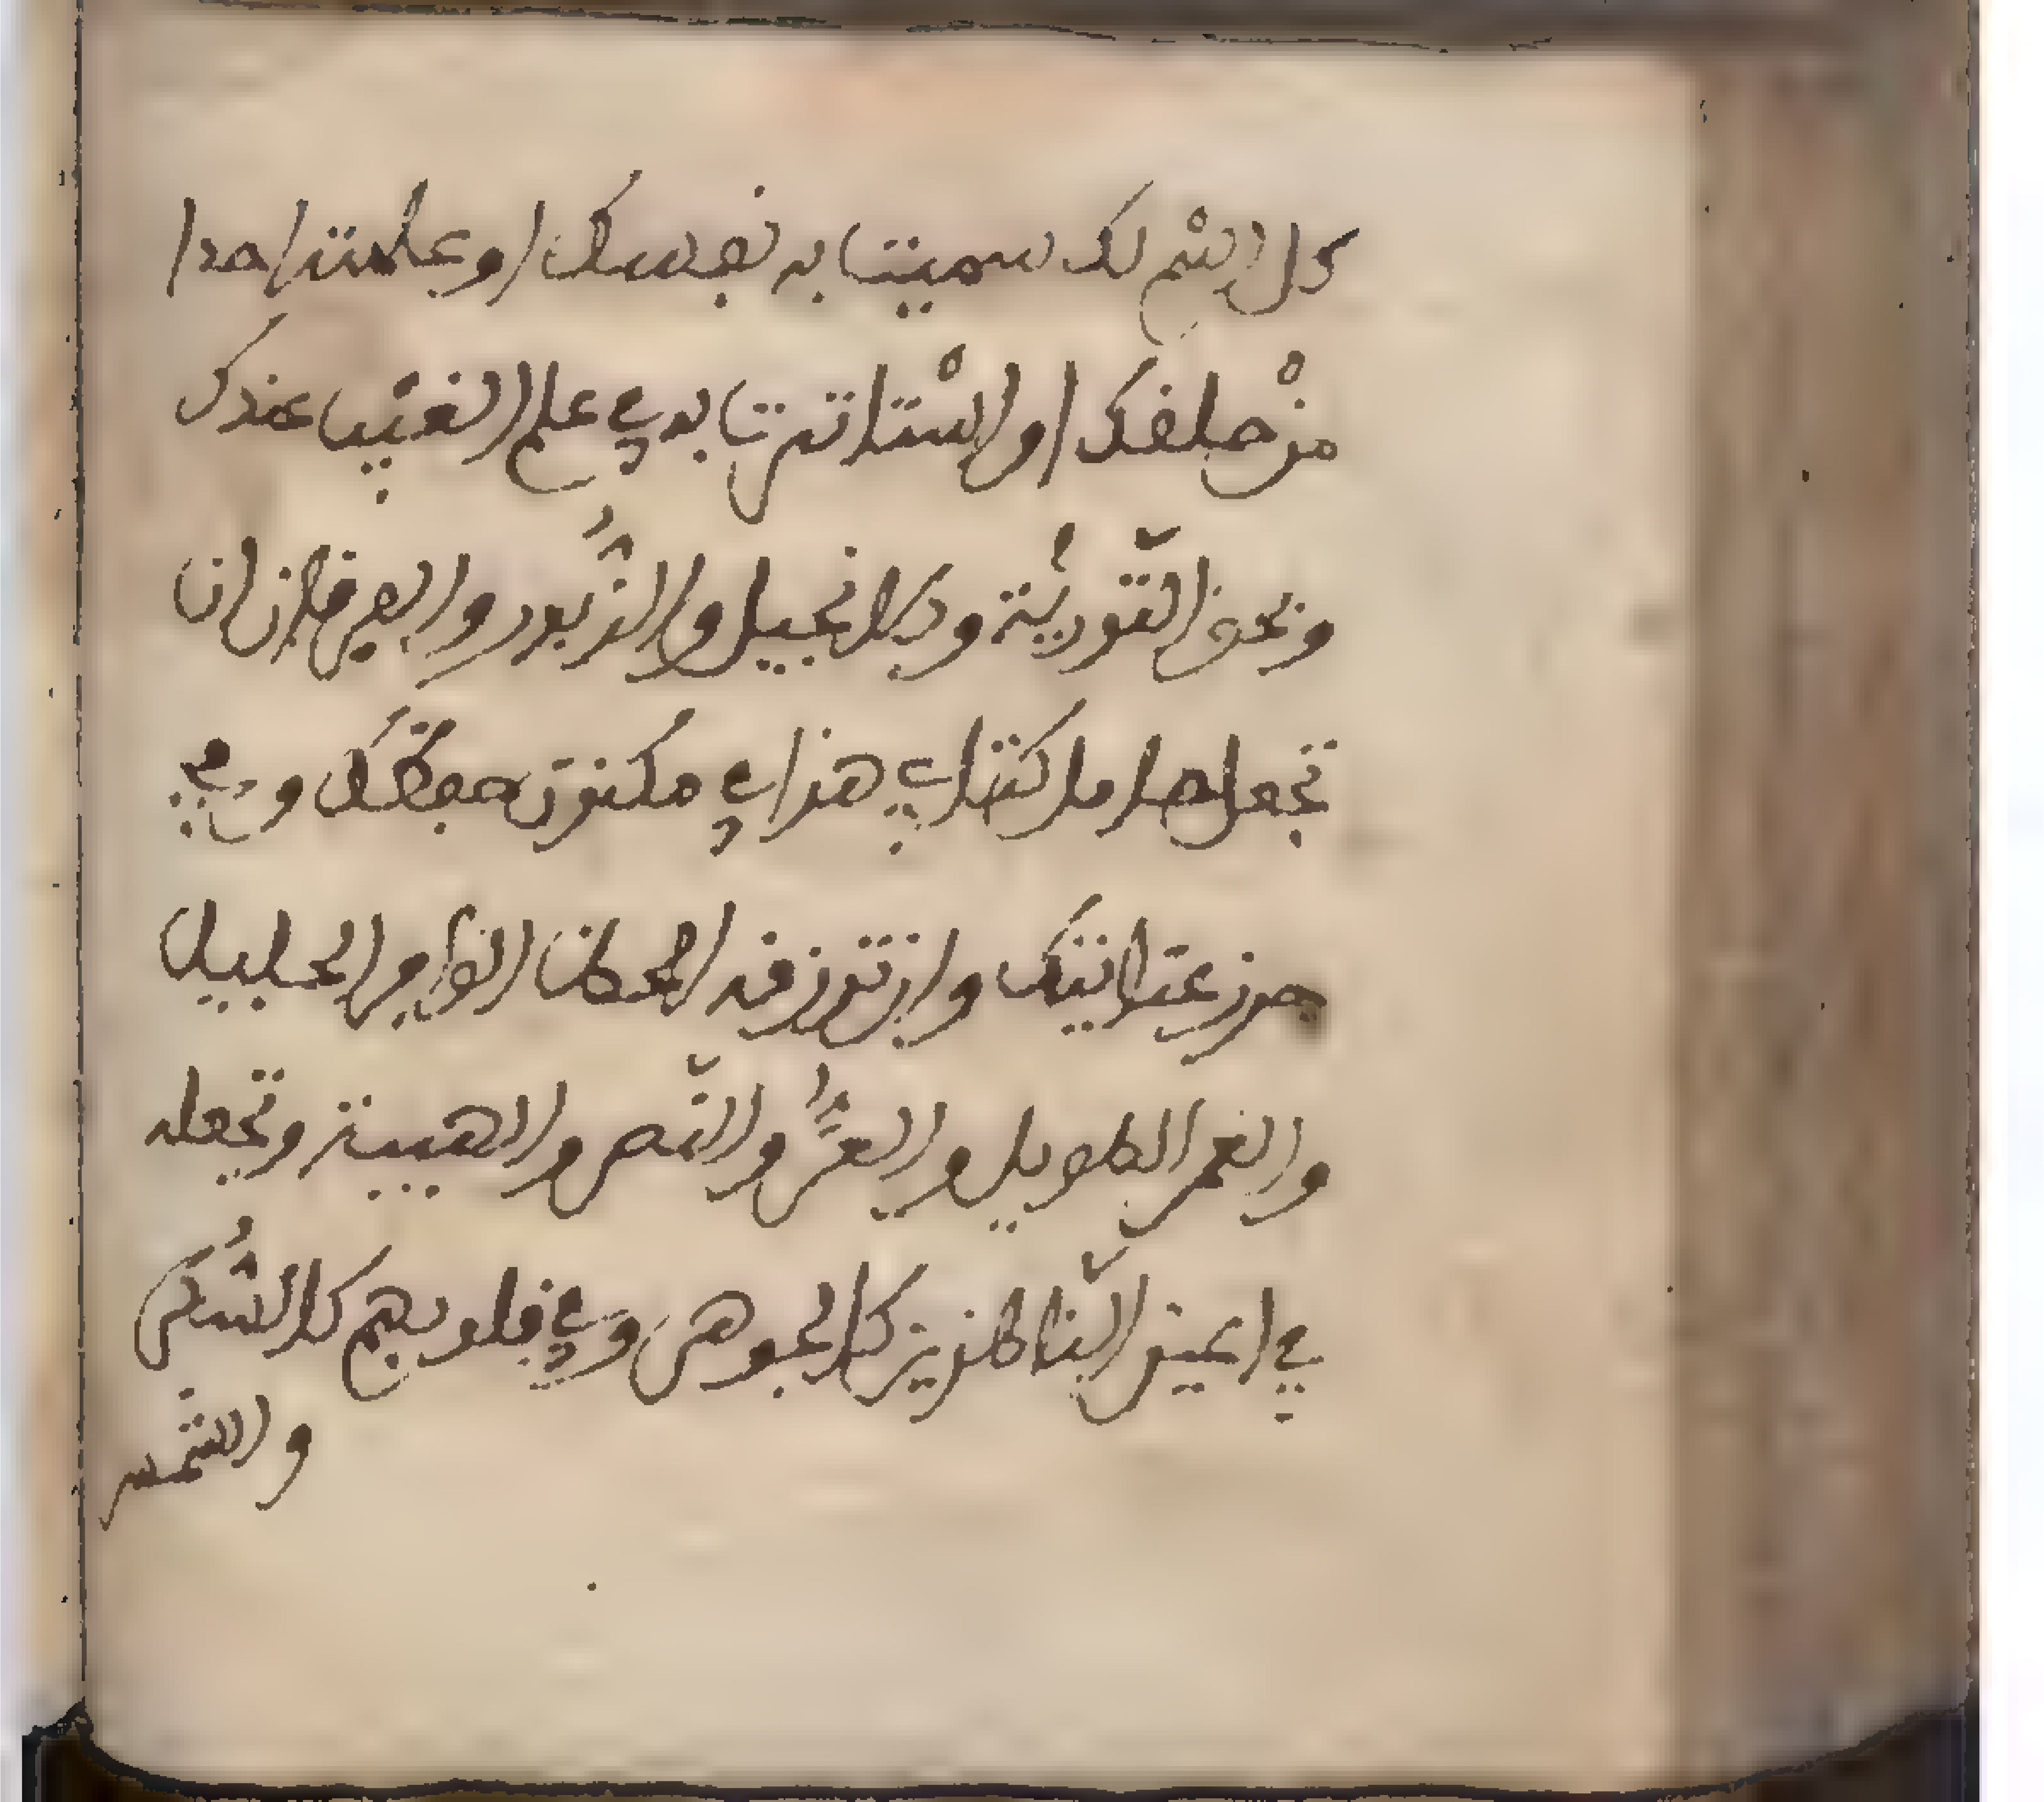 كل اسْم لك سميت به نفسك او علمته احدا
منْ خلقك او اسْتاترت به في علم الغيب عندك
وبحق التّورية وبالانجيل والزَّبور والفرقان ان
تجعل حامل كتابي هذا في مكنون حفظك وفي
حرز عنايتك وان ترزقه الحظ الوافر الجليل
والعمر الطويل والعزَّ والنّصر والهيبة وتجعله
في اعين النّاظرين كالجوهر وفي قلوبهم كالسُّكر
والشمس